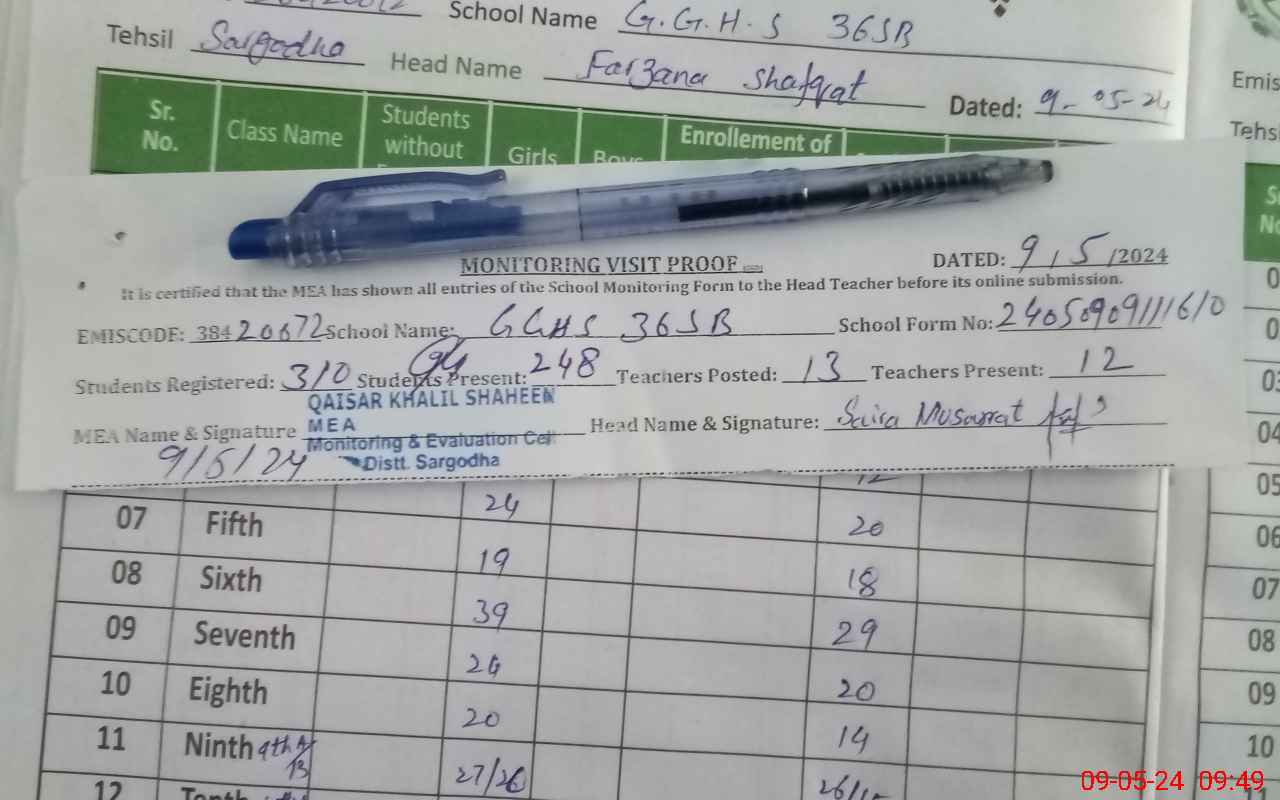 School Name G.G.H.S 36SB
Tehsil Sargodha Head Name Farzana Shafqat Dated: 9-05-24
Sr. No. Class Name Students without Girls Boys Enrollement of
MONITORING VISIT PROOF DATED: 9/5/2024
It is certified that the MEA has shown all entries of the School Monitoring Form to the Head Teacher before its online submission.
EMISCODE: 38420672 School Name: GGHS 36SB School Form No:
Students Registered: 310 Students Present: 248 Teachers Posted: 13 Teachers Present: 12
QAISAR KHALIL SHAHEEN
MEA Name & Signature MEA Head Name & Signature: Saira Musarrat
Monitoring & Evaluation Cell
9/5/24 Distt. Sargodha
12
07 Fifth 24 20
08 Sixth 19 18
09 Seventh 39 29
10 Eighth 24 20
11 Ninth 9th A/B 20 14
12 Tenth 27/26 26/
Emis
Tehs
05
06
07
08
09
10
09-05-24 09:49